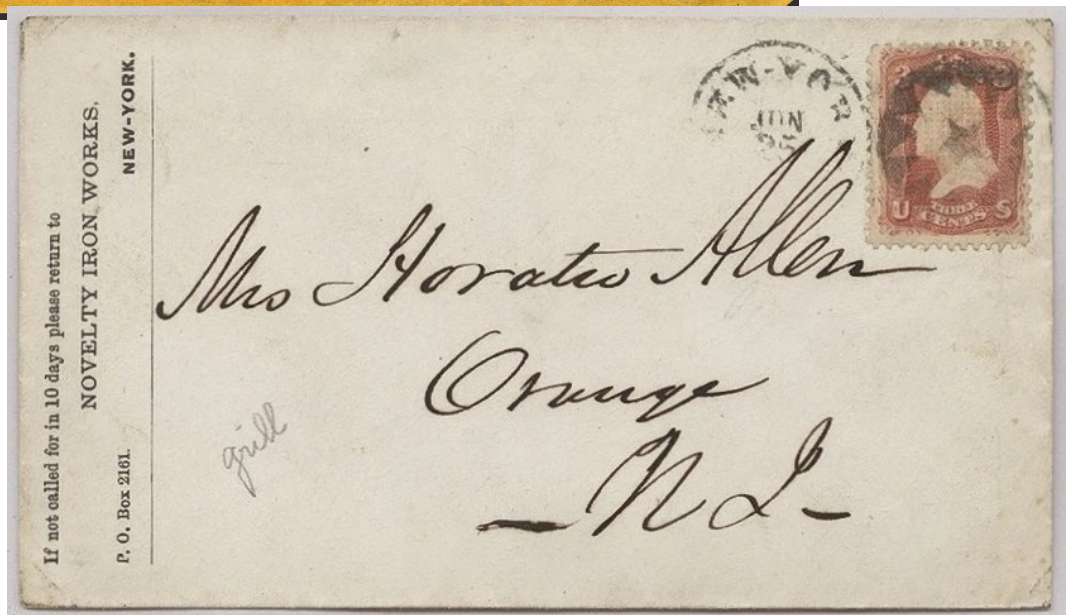 If not called for in 10 days please return to
NOVELTY IRON WORKS,
P. O. Box 2161. NEW-YORK.
NEW-YOR
JUN
U CENTS S
Mrs Horatio Allen
Orange
N J
grill